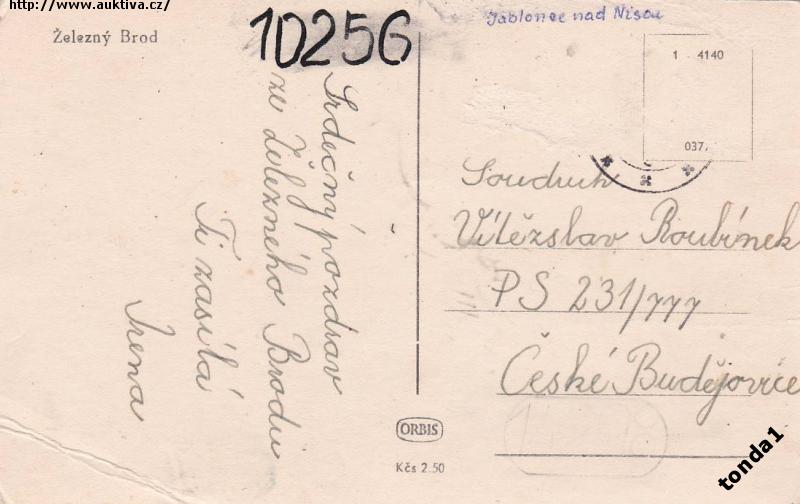 http://www.auktiva.cz/
Železný Brod
10256
Jablonec nad Nisou
1 4140
037.
Srdečný pozdrav
ze Železného Brodu
Ti zasílá
Irena
Soudruh
Vítězslav Roubínek
PS 231/777
České Budějovice
ORBIS
Kčs 2.50
tonda1